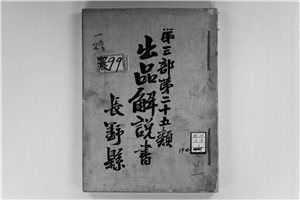 第三部第二十五類
出品解説書
長野縣
農99